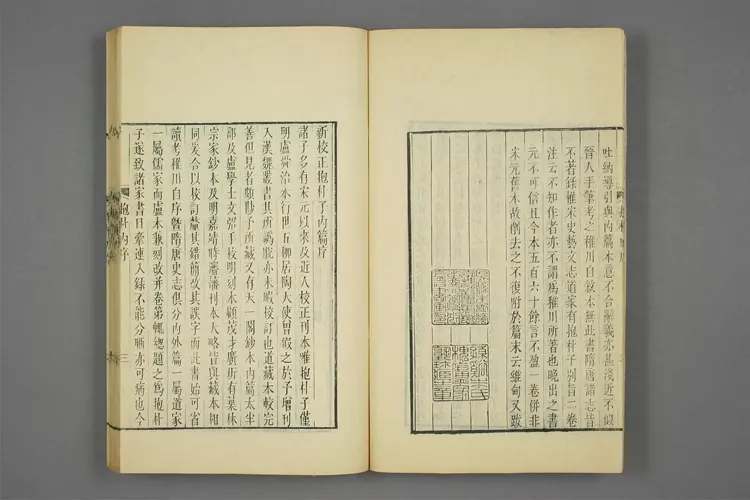 吐納導引與內篇本意不合辭義亦甚淺近不似
晉人手筆考之稚川自敘本無此書隋唐諸志皆
不著錄惟宋史藝文志道家有抱朴子別旨二卷
注云不知作者亦不謂爲稚川所著也晚出之書
元不可信且今本五百六十餘言不盈一卷併非
宋元舊本故削去之不復附於篇末云維甸又跋
新校正抱朴子內篇序
諸子多有宋元以來及近人校正刊本唯抱朴子僅
明盧舜治本行世五柳居陶大使曾假之於予增刊
入漢魏叢書其所譌脫亦未暇校訂也道藏本較完
善但見者頗尠予所藏又有天一閣鈔本內篇太半
部及盧學士文弨手校明刻本顧茂才廣圻所有葉林
宗家鈔本及明嘉靖時瀋藩刊本大略皆與藏本相
同爰合以校訂釐其錯簡改其誤字而此書始可省
讀考稚川自序暨隋唐史志俱分內外篇一屬道家
一屬儒家而盧本兼刻改并卷第輒總題之爲抱朴
子遂致諸家書目牽連入錄不能分晰亦可病也今
抱朴內序
三